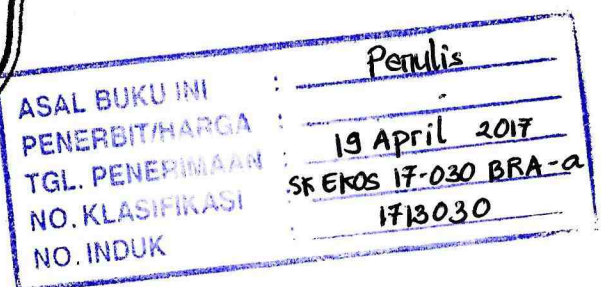 ASAL BUKU INI : Penulis
PENERBIT/HARGA : -
TGL. PENERIMAAN : 19 April 2017
NO. KLASIFIKASI : SK EKOS 17-030 BRA-a
NO. INDUK : 1713030